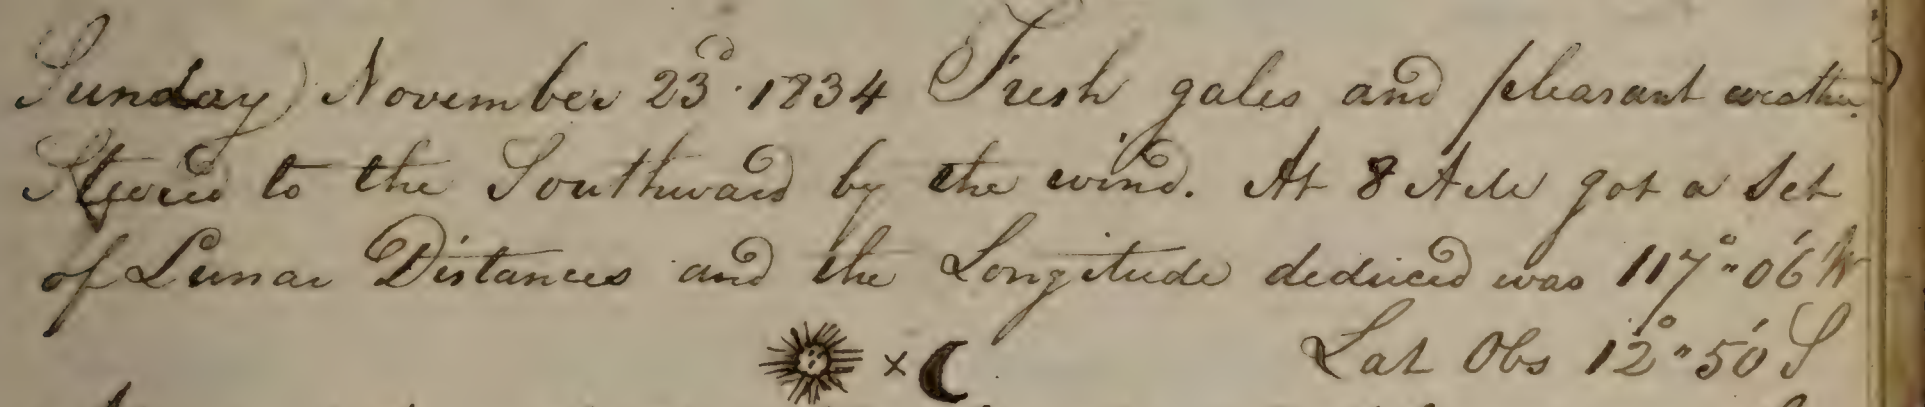 Sunday November 23d. 1834 Fresh gales and pleasant weather
Steered to the Southward by the wind. At 8 AM got a Set
of Lunar Distances and the Longitude deduced was 117°"06' W
Lat Obs 12°"50' S